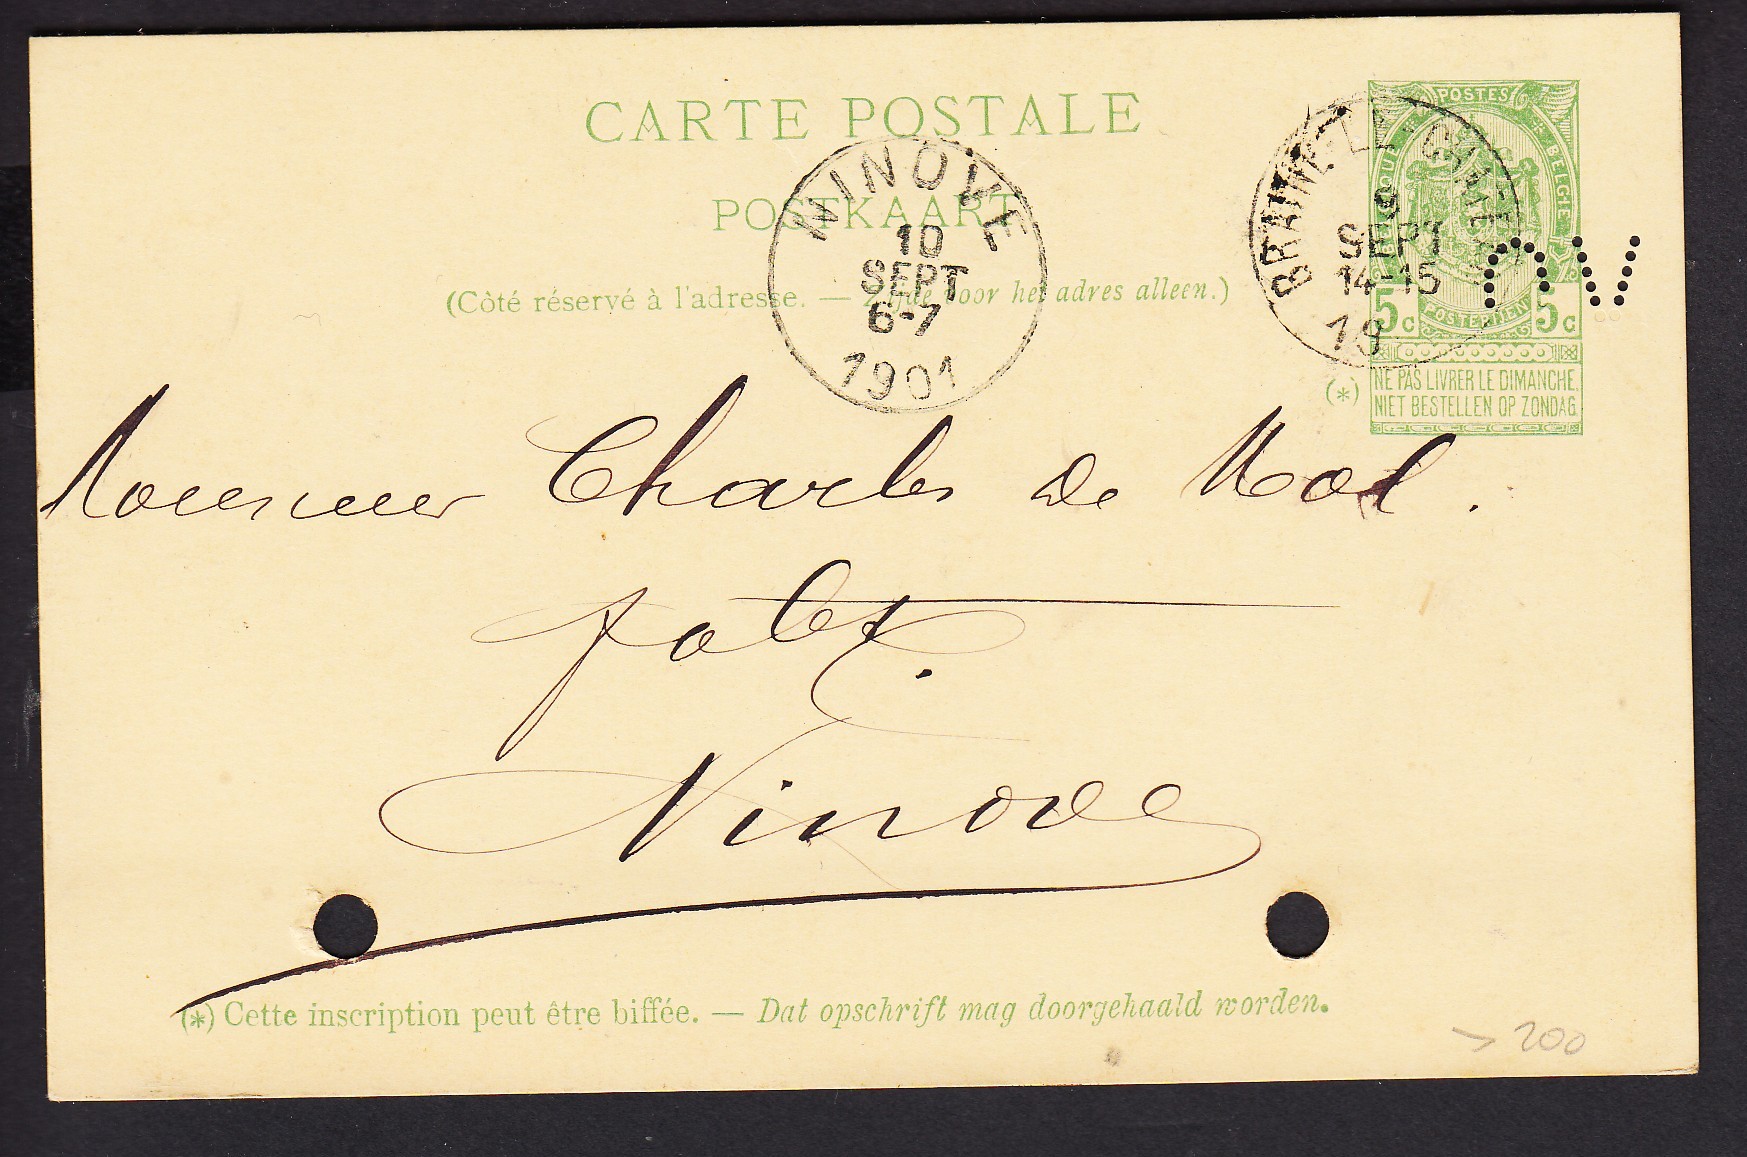 CARTE POSTALE
POSTKAART
(Côté réservé à l'adresse. — Zijde voor het adres alleen.)
NINOVE
10
SEPT
6-7
1901
BRAINE-LE-CHATEAU
9
SEPT
14-15
19
POSTES
BELGIQUE
BELGIE
5c POSTERIJEN 5c
(*) NE PAS LIVRER LE DIMANCHE.
NIET BESTELLEN OP ZONDAG.
Monsieur Charles De Mol.
fabt.
Ninove
(*) Cette inscription peut être biffée. — Dat opschrift mag doorgehaald worden.
200